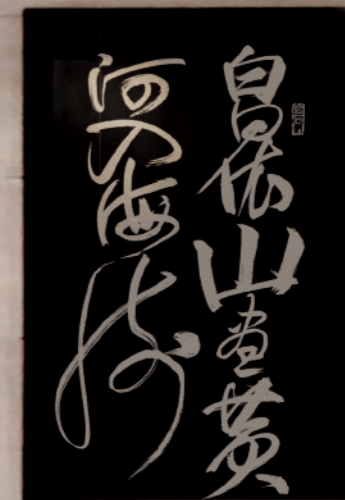 白日依山尽黄
河入海流